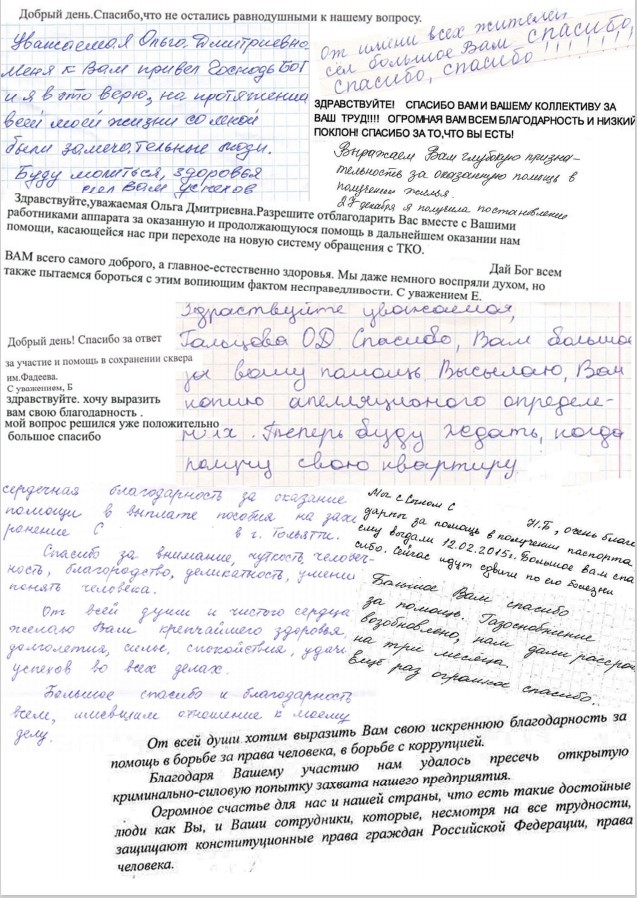 Добрый день.Спасибо,что не остались равнодушными к нашему вопросу.
Уважаемая Ольга Дмитриевна,
меня к Вам привел Господь Бог
и я в это верю, на протяжении
всей моей жизни со мной
были замечательные люди.
Буду молиться, здоровья
Вам успехов
От имени всех жителей
сёл большое Вам спасибо,
спасибо, спасибо !!!!!!!
ЗДРАВСТВУЙТЕ! СПАСИБО ВАМ И ВАШЕМУ КОЛЛЕКТИВУ ЗА
ВАШ ТРУД!!!! ОГРОМНАЯ ВАМ ВСЕМ БЛАГОДАРНОСТЬ И НИЗКИЙ
ПОКЛОН! СПАСИБО ЗА ТО,ЧТО ВЫ ЕСТЬ!
Выражаем Вам глубокую призна-
тельность за оказанную помощь в
получении жилья.
27 декабря я получила постановление
Здравствуйте,уважаемая Ольга Дмитриевна.Разрешите отблагодарить Вас вместе с Вашими
работниками аппарата за оказанную и продолжающуюся помощь в дальнейшем оказании нам
помощи, касающейся нас при переходе на новую систему обращения с ТКО.
Дай Бог всем
ВАМ всего самого доброго, а главное-естественно здоровья. Мы даже немного воспряли духом, но
также пытаемся бороться с этим вопиющим фактом несправедливости. С уважением Е.
Здраствуйте уважаемая,
Гальцова О.Д. Спасибо, Вам больша
за вашу помощь. Высылаю, Вам
копию апелляционого определе-
них. Теперь буду ждать, когда
получу свою квартиру.
Добрый день! Спасибо за ответ
за участие и помощь в сохранении сквера
им.Фадеева.
С уважением, Б
здравствуйте. хочу выразить
вам свою благодарность .
мой вопрос решился уже положительно
большое спасибо
сердечная благодарность за оказание
помощи в выплате пособия на захо
ронение С в г. Тольятти.
Спасибо за внимание, чуткость, человеч-
ность, благородство, деликатность, умении
понять человека.
От всей души и чистого сердца
желаю Вам крепчайшего здоровья,
долголетия, силы, спокойствия, удачи
успехов во всех делах.
Большое спасибо и благодарность
всем, имевшим отношение к моему
делу.
Мы с Сыном С Н.Б, очень благо
дарны за помощь в получении паспорта
ему выдали 12.02.2015г. Большое вам спа
сибо. Сейчас идут сдвиги по его болезни
Большое Вам спасибо
за помощь. Газоснабжение
возобновлено, нам дали рассроч
на три месяца.
Ещё раз огромное спасибо..
От всей души хотим выразить Вам свою искреннюю благодарность за
помощь в борьбе за права человека, в борьбе с коррупцией.
Благодаря Вашему участию нам удалось пресечь открытую
криминально-силовую попытку захвата нашего предприятия.
Огромное счастье для нас и нашей страны, что есть такие достойные
люди как Вы, и Ваши сотрудники, которые, несмотря на все трудности,
защищают конституционные права граждан Российской Федерации, права
человека.